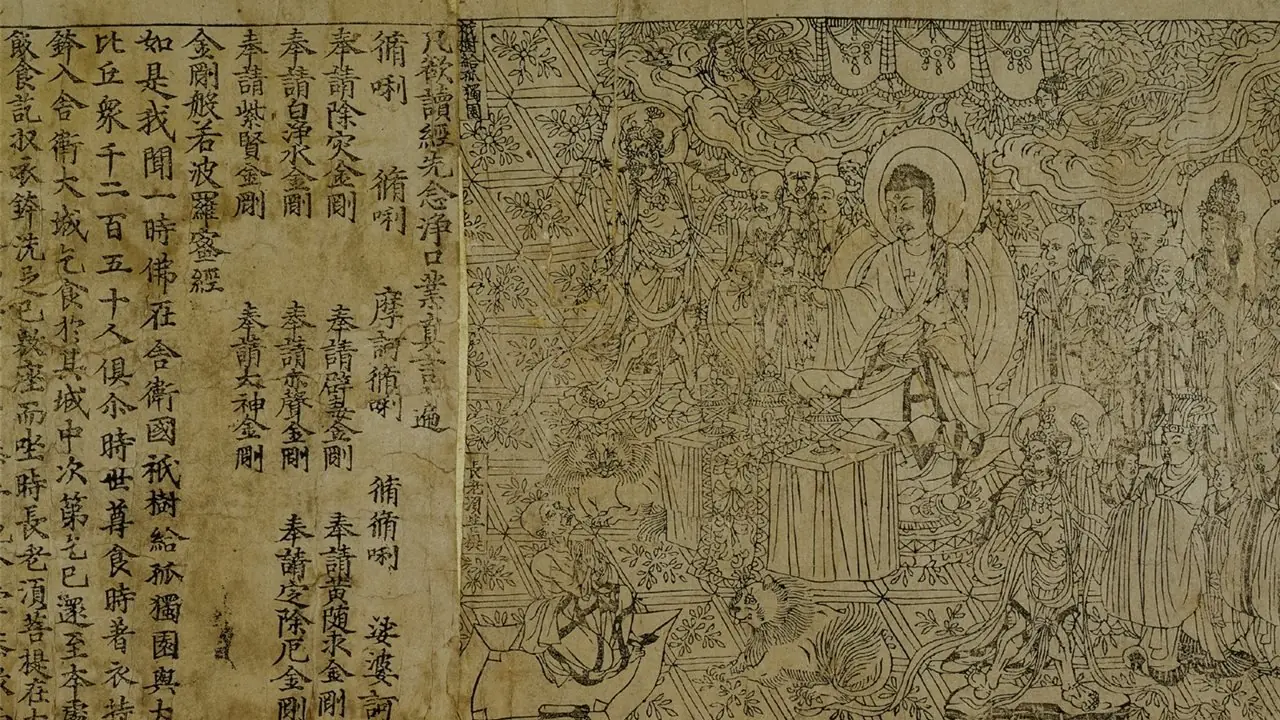 祇樹給孤獨園
長老須菩提
凡欲讀經先念淨口業真言一遍
脩唎 脩唎 摩訶脩唎 脩脩唎 娑婆訶
奉請除灾金剛 奉請辟毒金剛 奉請黃随求金剛
奉請白淨水金剛 奉請赤聲金剛 奉請定除厄金剛
奉請紫賢金剛 奉請大神金剛
金剛般若波羅蜜經
如是我聞一時佛在舍衛國祇樹給孤獨園與大
比丘衆千二百五十人俱尒時世尊食時著衣持
鉢入舍衛大城乞食於其城中次第乞已還至本處
飯食訖收衣鉢洗足已敷座而坐時長老須菩提在大